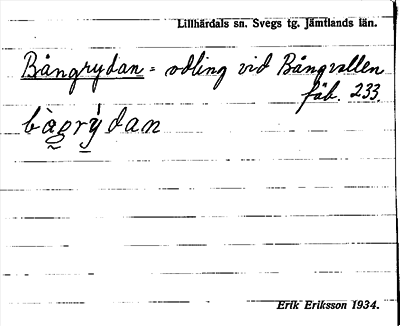 Lillhärdals sn. Svegs tg. Jämtlands län.
Bångrydan = odling vid Bångvallen
fäb. 233.
bàgrýdan
Erik Eriksson 1934.